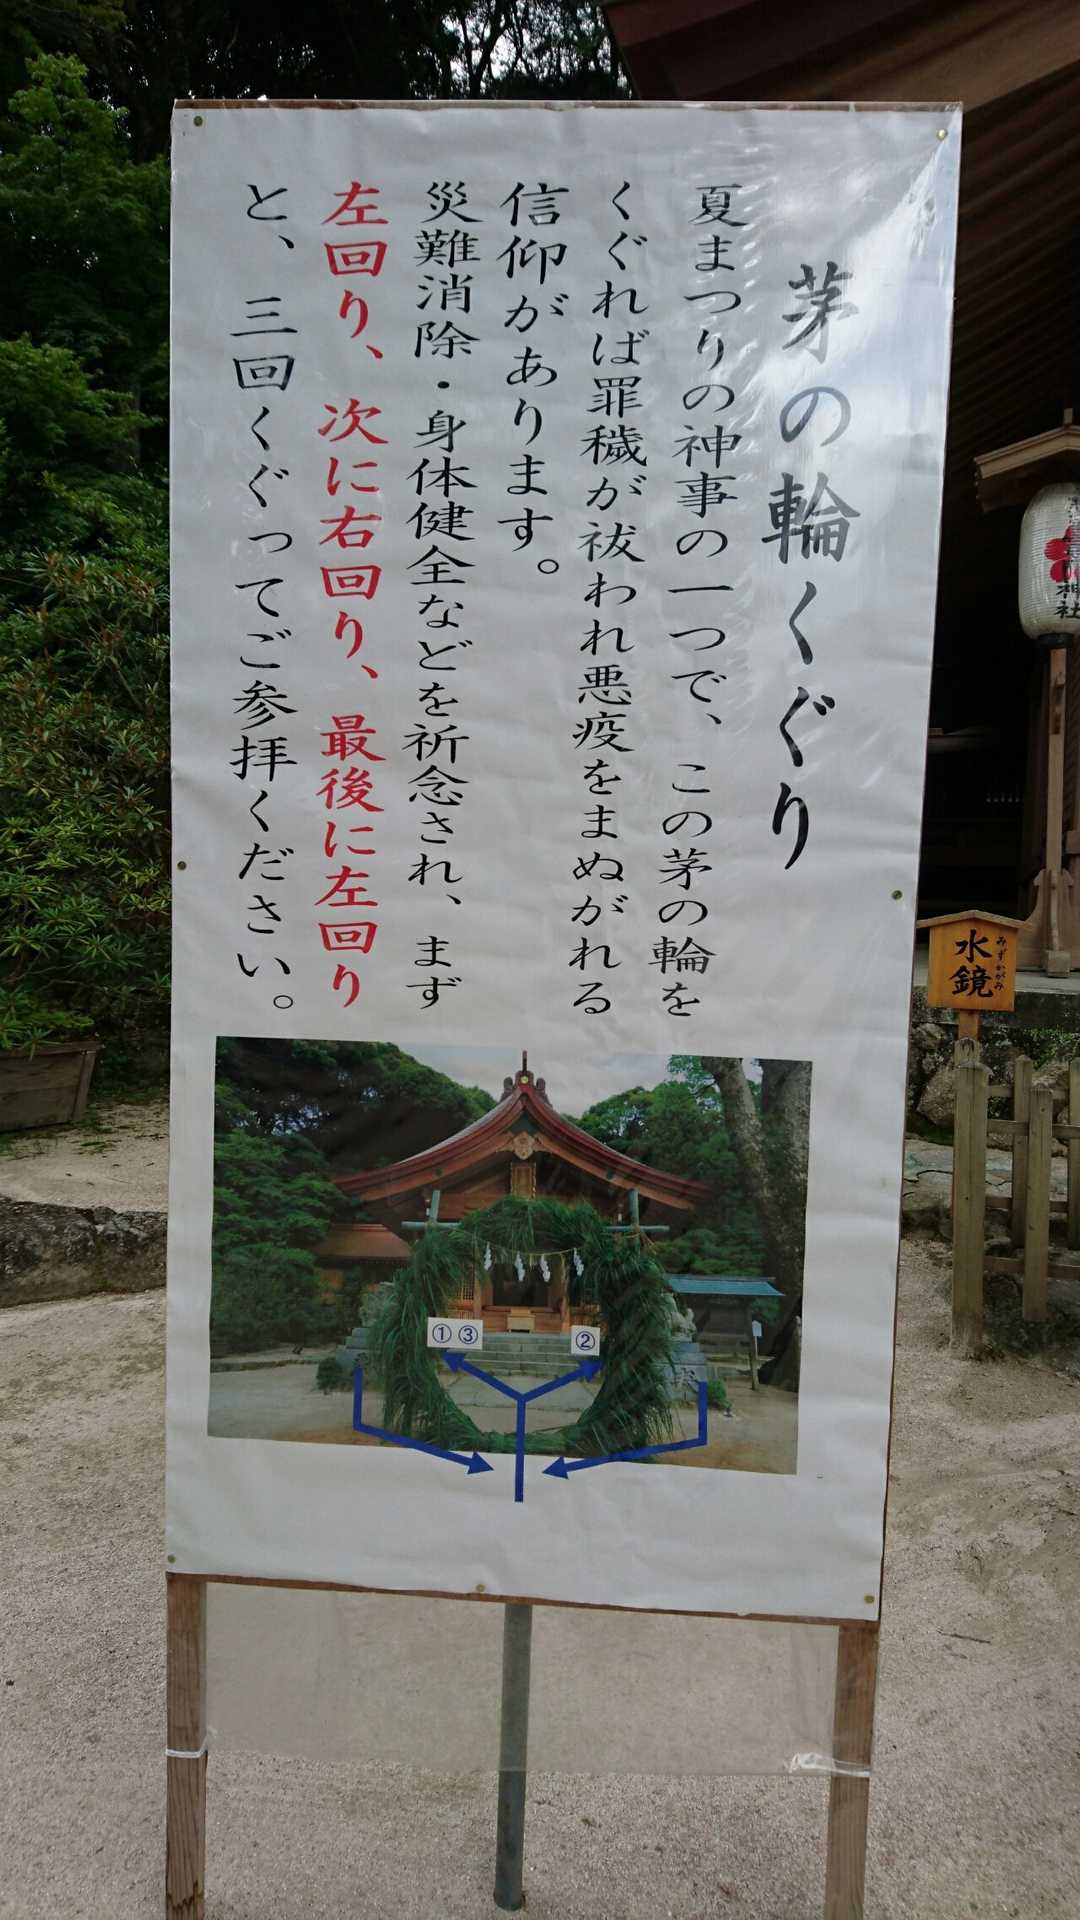 茅の輪くぐり
夏まつりの神事の一つで、この茅の輪を
くぐれば罪穢が祓われ悪疫をまぬがれる
信仰があります。
災難消除・身体健全などを祈念され、まず
左回り、次に右回り、最後に左回り
と、三回くぐってご参拝ください。
①③
②
水鏡
みずかがみ
神社